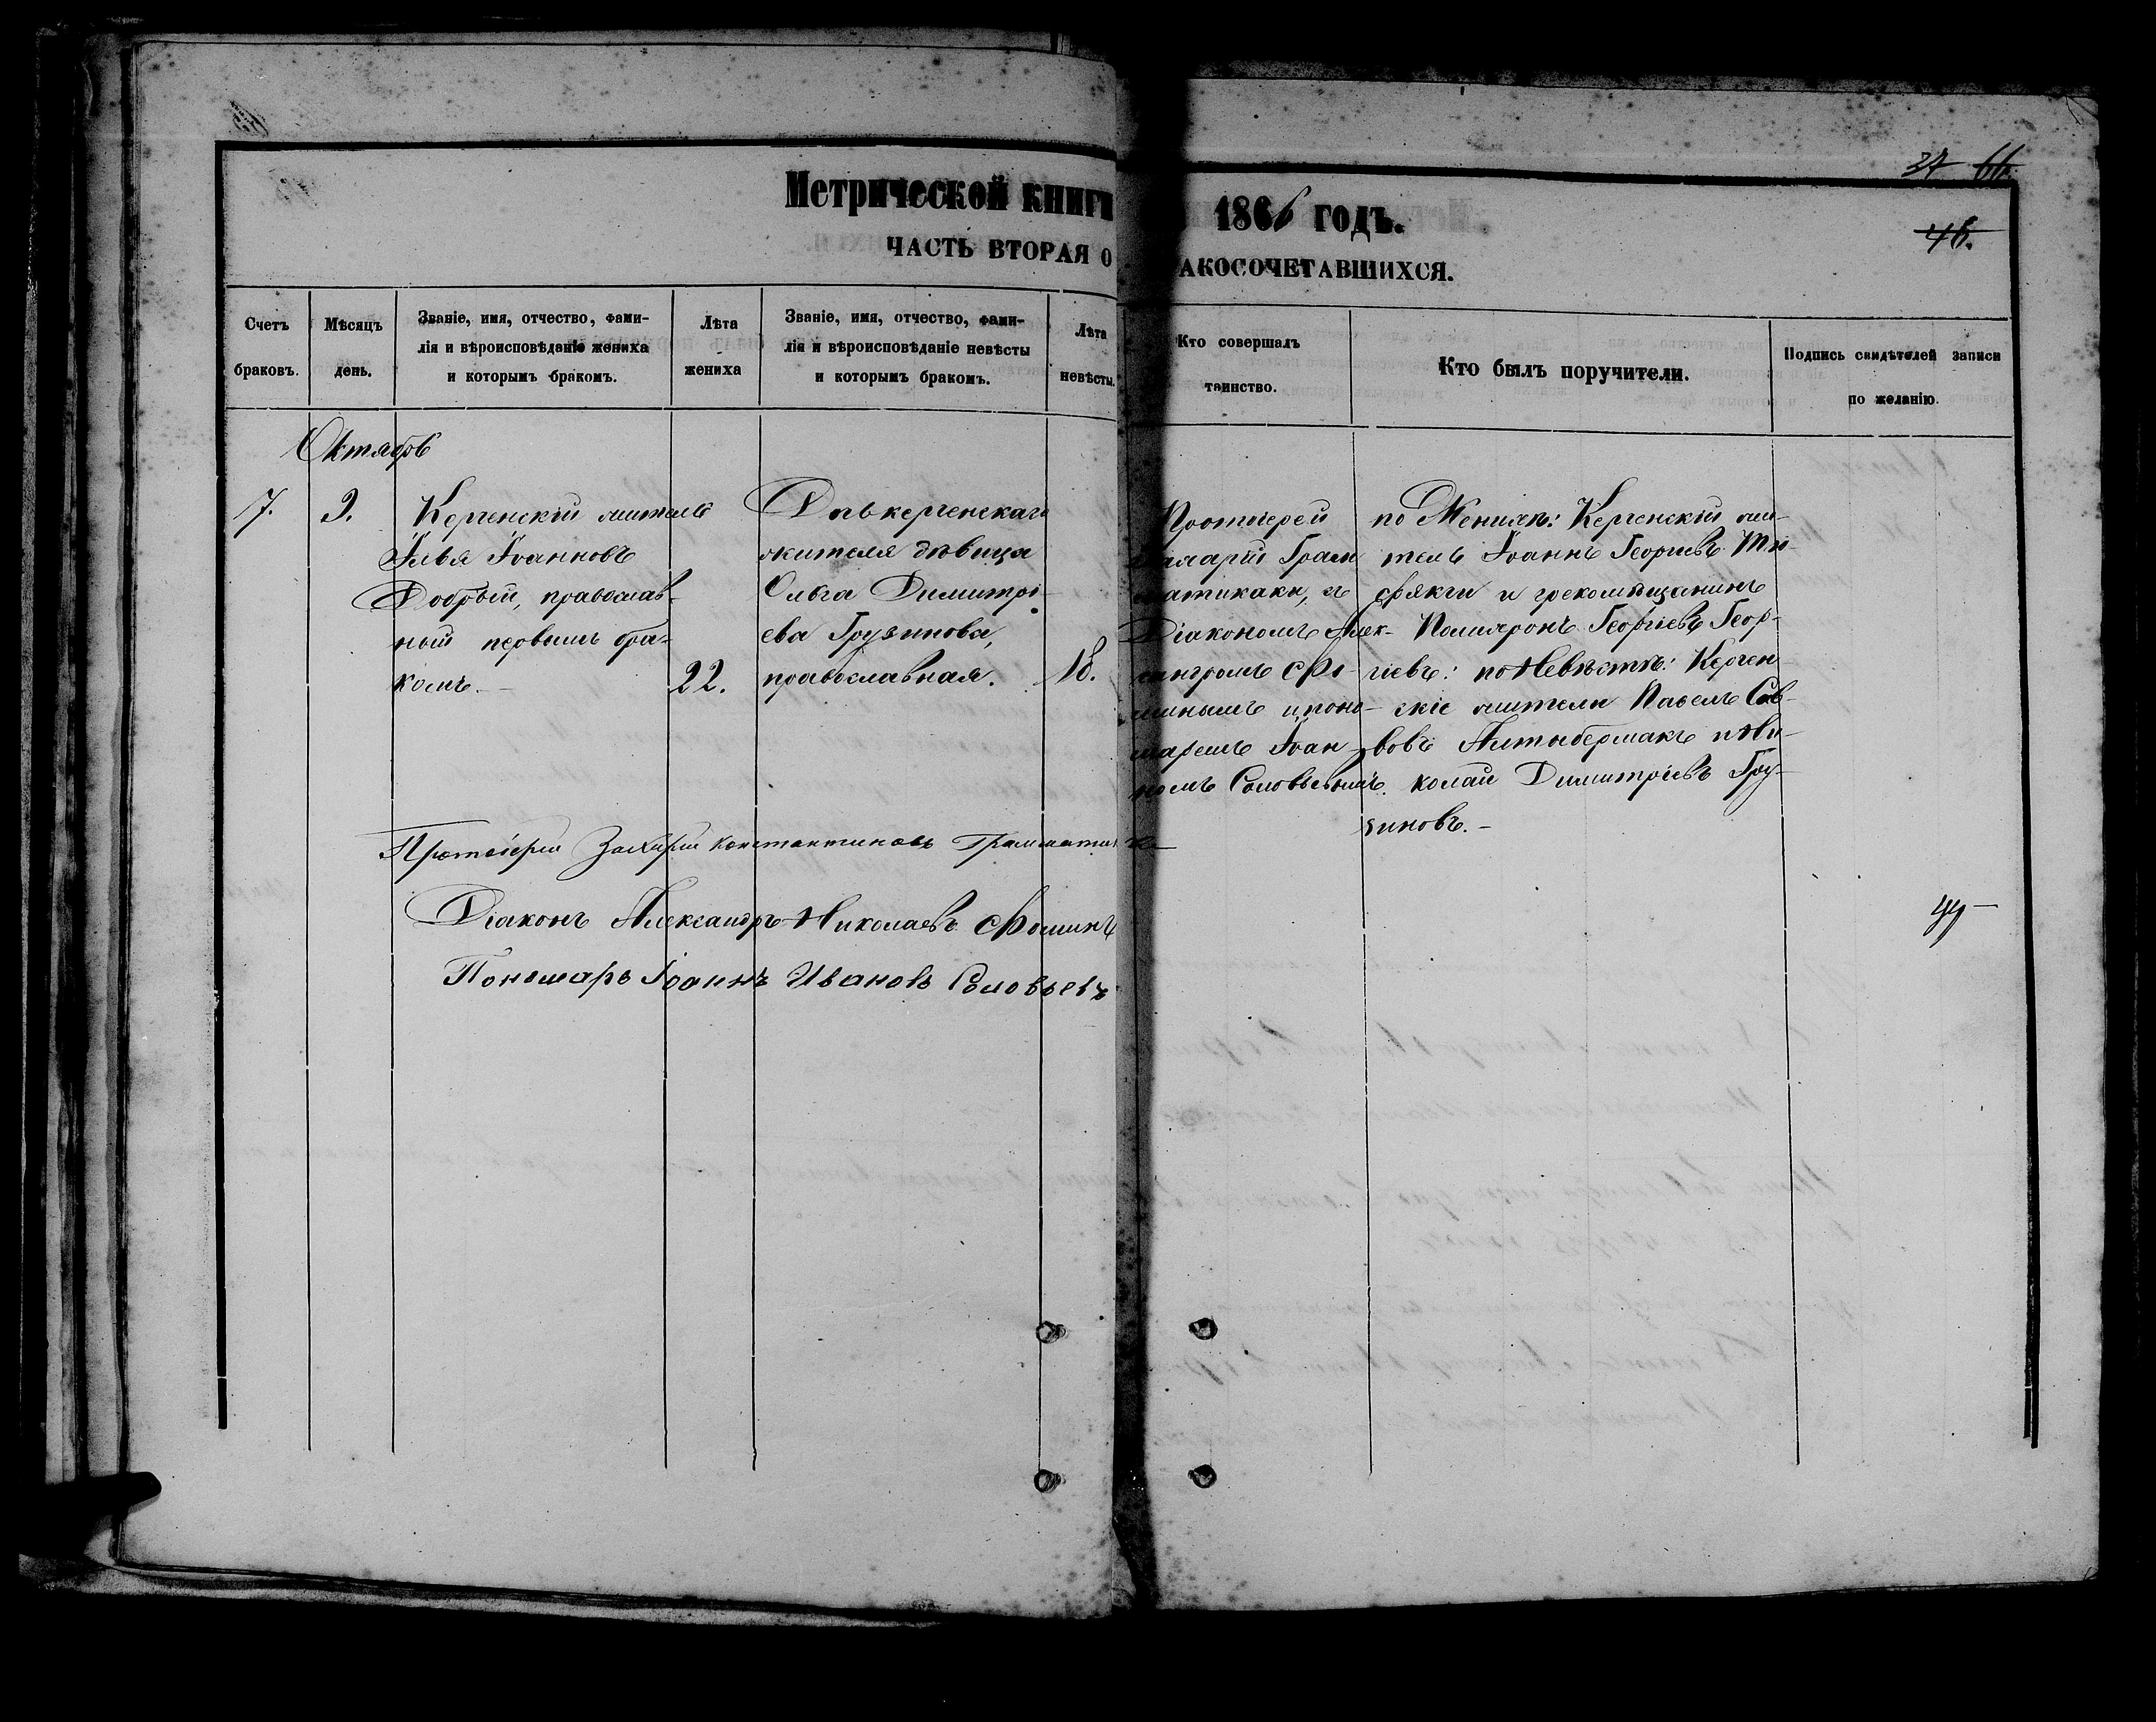 37 66.
Метрической книги 1866 годъ.
46.
ЧАСТЬ ВТОРАЯ О АКОСОЧЕТАВШИХСЯ.
Счетъ браковъ.
Мѣсяцъ день.
Званіе, имя, отчество, фами-
лія и вѣроисповѣданіе жениха
и которымъ бракомъ.
Лѣта жениха
Званіе, имя, отчество, фами-
лія и вѣроисповѣданіе невѣсты
и которымъ бракомъ.
Лѣта невѣсты.
Кто совершалъ
таинство.
Кто былъ поручители.
Подпись свидѣтелей записи
по желанію.
Октябрь
7.
9.
Керченскій житель
Илья Іоанновъ
Добрый, православ-
ный первымъ бра-
комъ.-
22.
Дочь керченскаго
жителя дѣвица
Ольга Димитрі-
ева Грузинова,
православная.
18.
Протоіерей
Захарій Грам
матикаки, съ
Діакономъ Алек-
сандромъ Фо-
минымъ и поно-
маремъ Іоан-
номъ Соловьевымъ.
по Женихѣ: Керченскій жи-
тель Іоаннъ Георгіевъ
и грекомѣщанинъ
Георгіевъ Геор-
гіевъ: по Невѣстѣ: Керчен-
скіе жители Павелъ Сав-
вовъ Алтыбермакъ и Ни-
колай Димитріевъ Гру-
зиновъ.-
Протоіерей Захарій Константиновъ Грамматика
Діаконъ Александръ Николаевъ Фоминъ
Пономарь Іоаннъ Ивановъ Соловьевъ